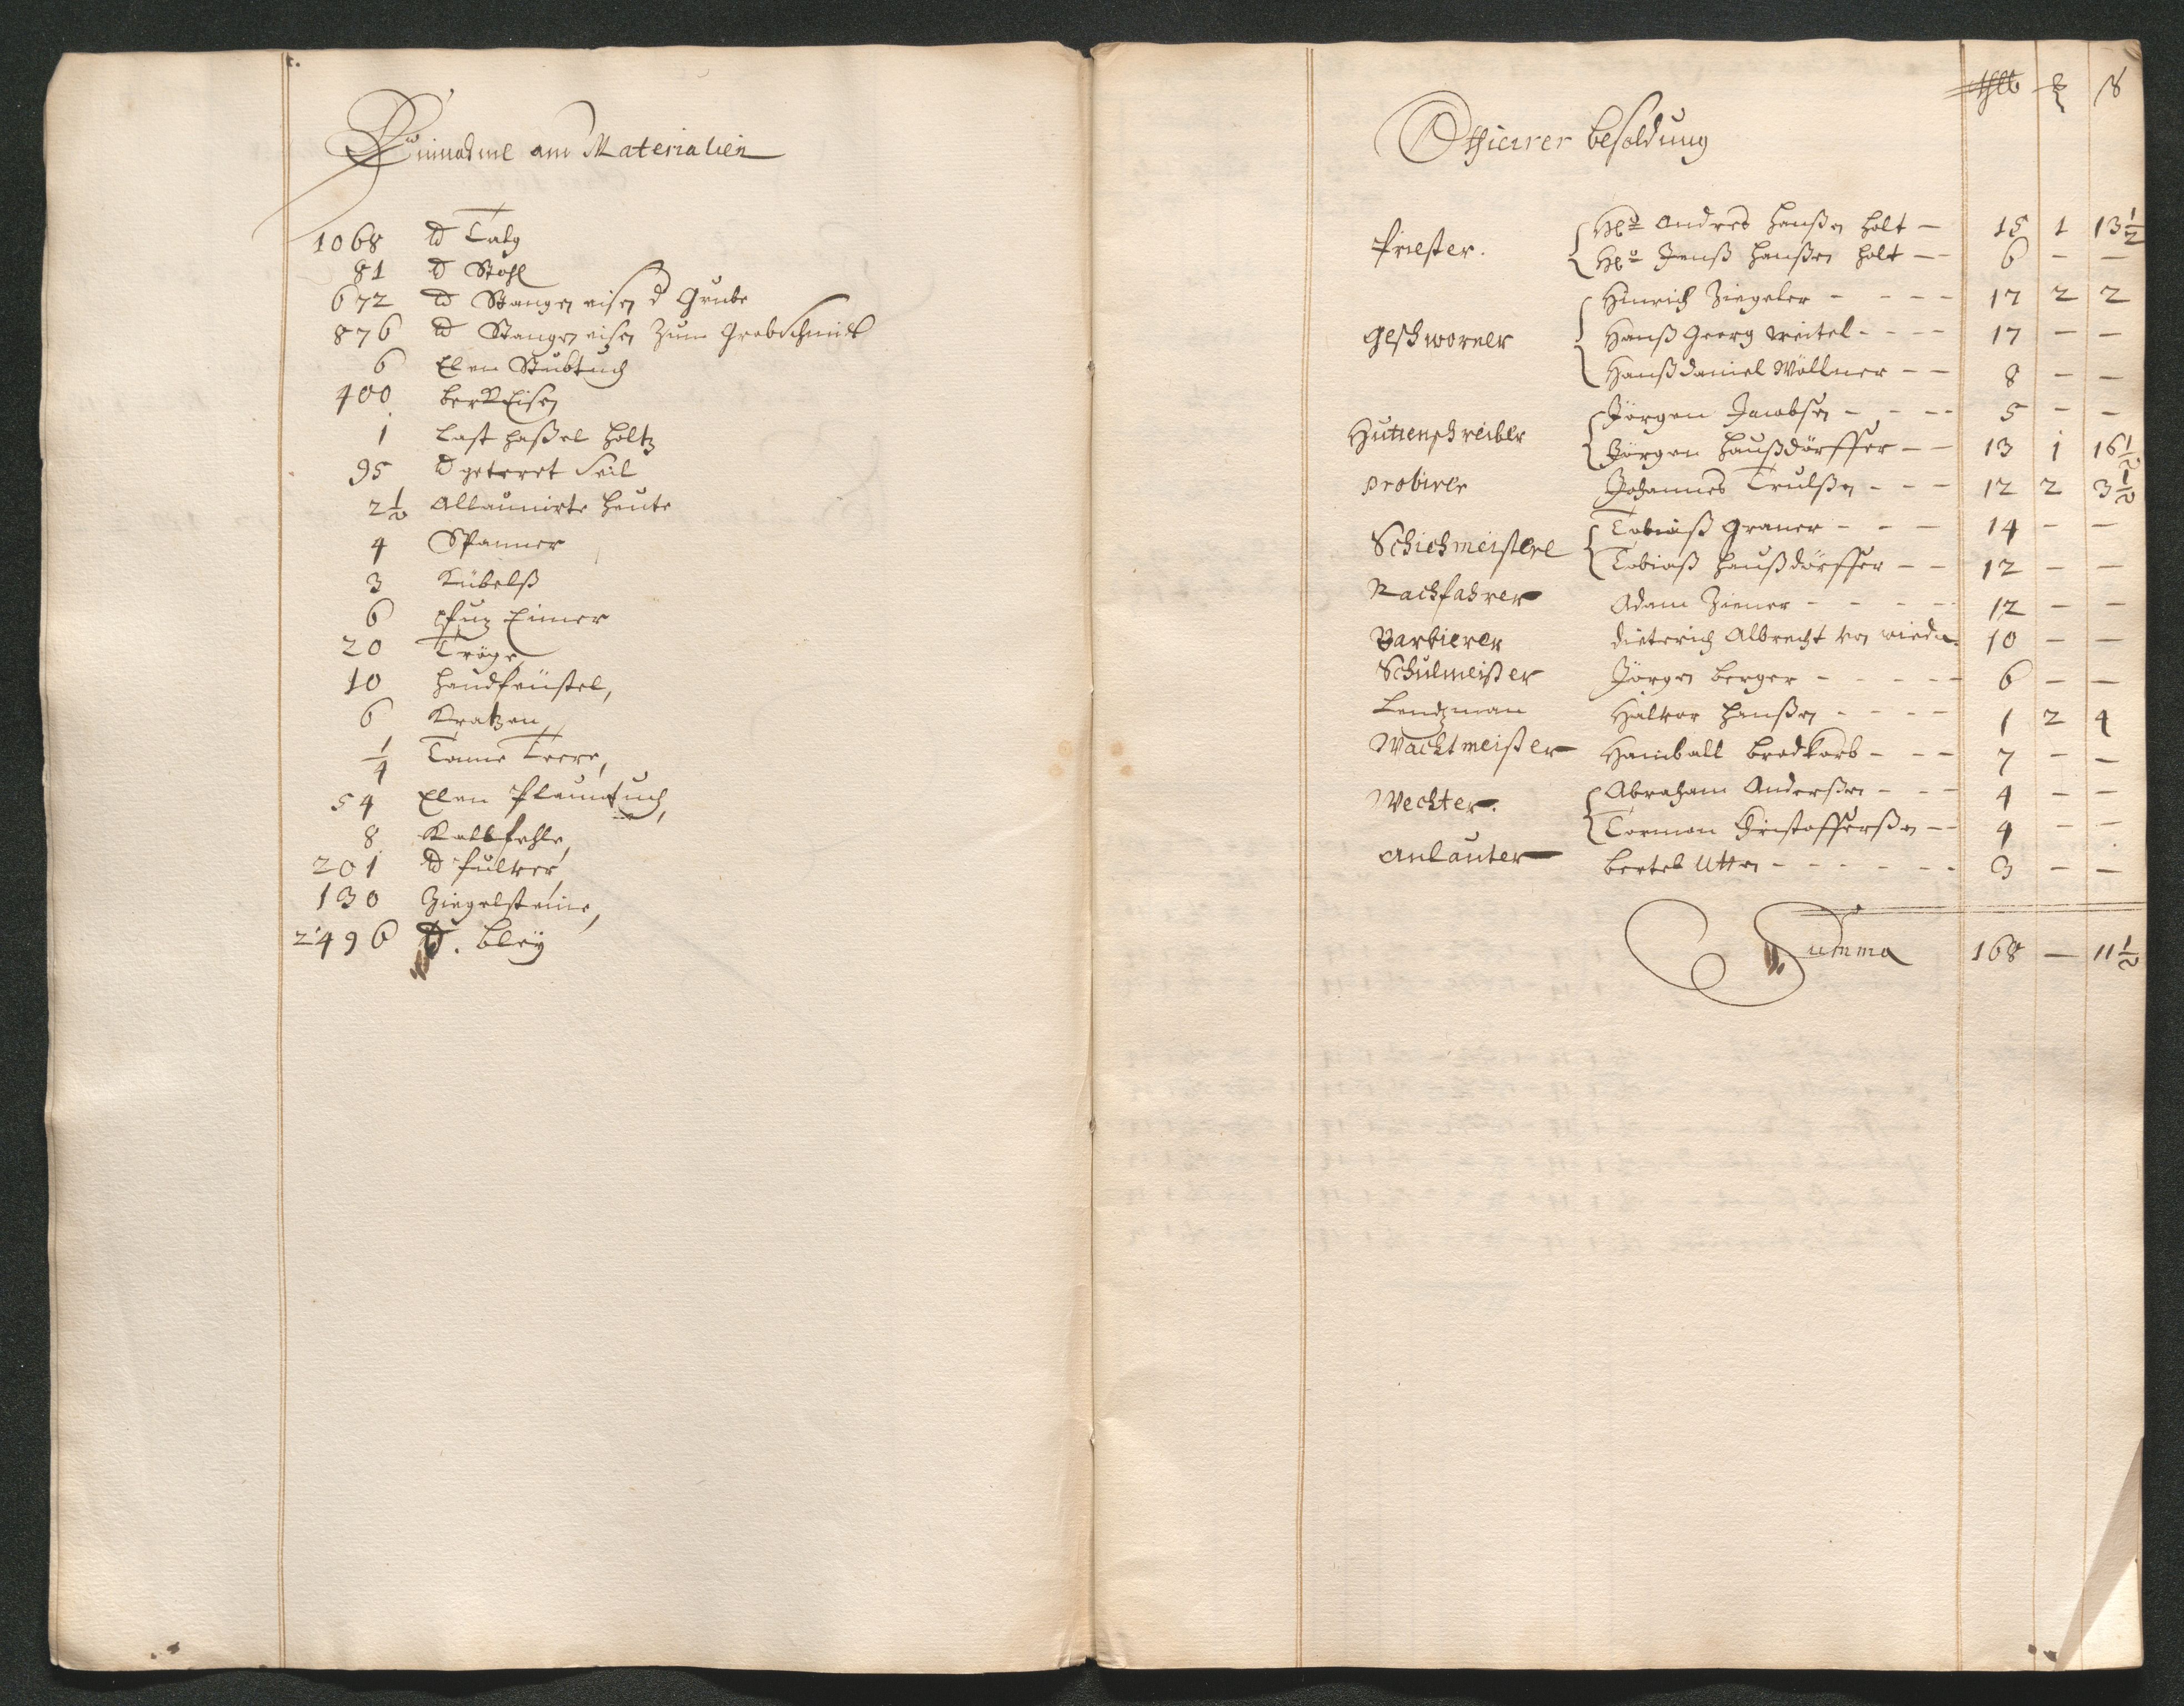 Einnahme am Materialien
1068 ℔ Talg
81 ℔ Stahl
672 ℔ Stangen eisen d Grube
876 ℔ Stangen eisen zum Grobschmidt
6 Elen Stubtuch
400 berkEisen
1 Last haßel holtz
95 ℔ geteret Seil
2½ Allaunirte heute
4 Spanner
3 Kübelß
6 pfuz Eimer
20 Tröge
10 handfeustel,
6 Kratzen,
¼ Tonne Teere,
54 Elen Plauntuch,
8 Kalbfehle,
201 ℔ Pulver,
130 Ziegelsteine,
2496 ℔. bley
Officirer besoldung
Priester. Hr Andres Hanßen Holt — 15 1 13½
Hr Jenß Hanßen Holt — 6 — —
Geschworner Hinrich Ziegeler - - - - 17 2 2
Hanß Georg Weitel - - - - 17 — —
Hanß daniel Wöllner — — 8 — —
Huttenschreiber Jörgen Jacobsen - - - 5 — —
Jörgen Haußdörffer — — 13 1 16½
Probirer Johannes Trulßen - - - 12 2 3½
Schichmeister Tobiaß Graner - - - 14 — —
Tobiaß Haußdörffer — — 12 — —
Nachfahrer Adam Ziener - - - - 12 — —
Barbierer dieterich Albrecht von wieda 10 — —
Schulmeister Jörgen berger - - - - - 6 — —
Lendzman Halvor Hanßen - - - - 1 2 4
Wachtmeister Hamball brodkorb - - - 7 — —
Wechter. Abraham Anderßen - - - 4 — —
Tormon Christofferßen — — 4 — —
Anlauter bertel Utten - - - - - - 3 — —
Summa 168 — 11½